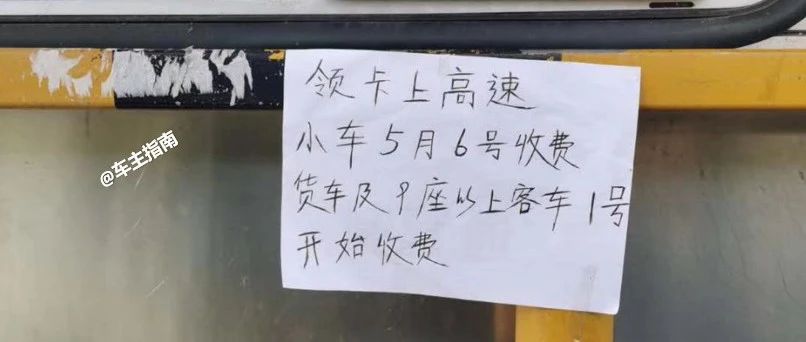 领卡上高速
小车5月6号收费
货车及9座以上客车1号
开始收费
@车主指南